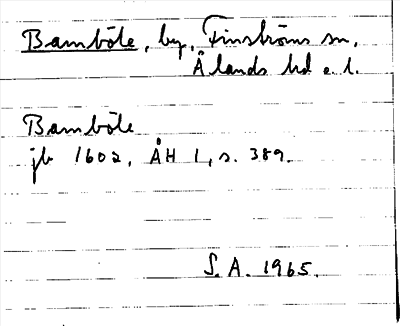 Bamböle, by, Finströms sn,
Ålands hd e. l.
Bamböle
jb 1602, ÅH 1, s. 389.
S. A. 1965.